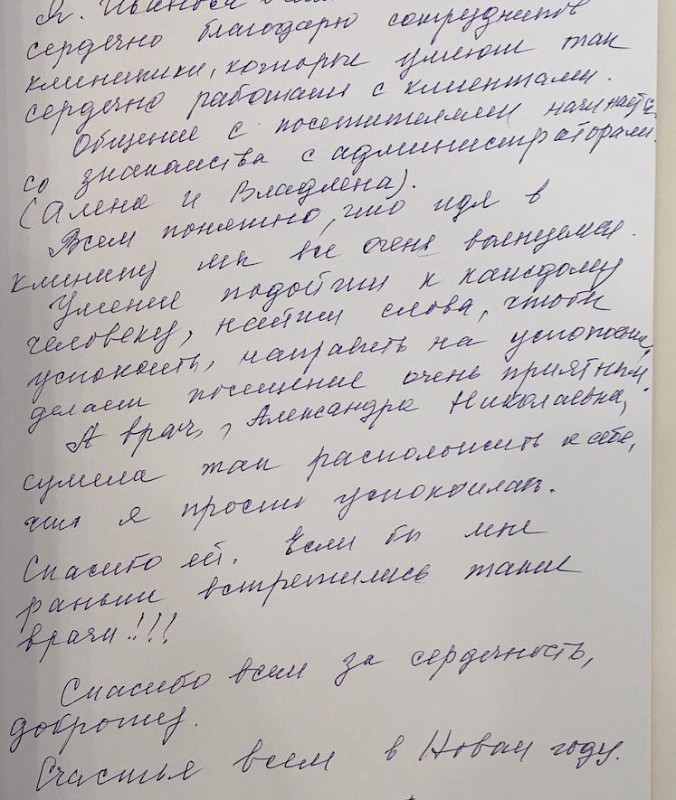 Я, Иванова
сердечно благодарю сотрудников
клиники, которые умеют так
сердечно работать с клиентами.
Общение с посетителями начинается
со знакомства с администраторами.
(Алена и Владлена).
Всем понятно, что идя в
клинику мы все очень волнуемся.
Умение подойти к каждому
человеку, найти слова, чтобы
успокоить, направить на успокоение,
делает посещение очень приятным.
А врач, Александра Николаевна,
сумела так расположить к себе,
что я просто успокоилась.
Спасибо ей. Если бы мне
раньше встретились такие
врачи!!!
Спасибо всем за сердечность,
доброту.
Счастья всем в Новом году.